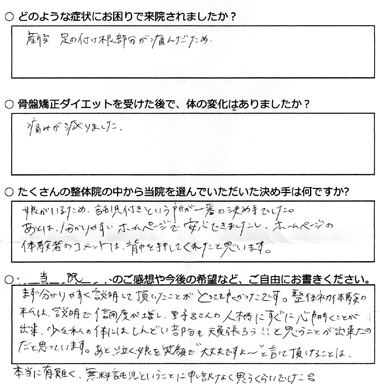 ○ どのような症状にお困りで来院されましたか？
足の付け根部分が痛んだため.
○ 骨盤矯正ダイエットを受けた後で、体の変化はありましたか？
痛みが減りました.
○ たくさんの整体院の中から当院を選んでいただいた決め手は何ですか？
娘がいるため、託児付きという所が一番の決め手でした。
あとは、分かりやすいホームページで安心できましたし、ホームページの
体験者のコメントは、背中を押してくれたと思います。
○ 当院のご感想や今後の希望など、ご自由にお書きください。
まず分かりやすく説明して頂けたことがとても良かったです。整体初体験の
私は、説明で信頼度が増し、さんの人柄にすぐに心開くことが
出来、少々私の体にはしんどい部分も頑張ろう!!と思うことが出来たの
だと思っています。あと、泣く娘を笑顔で"大丈夫ですよ〜"と言って頂けることは、
本当に有難く、無料託児ということに申し訳なく思うくらいでした。